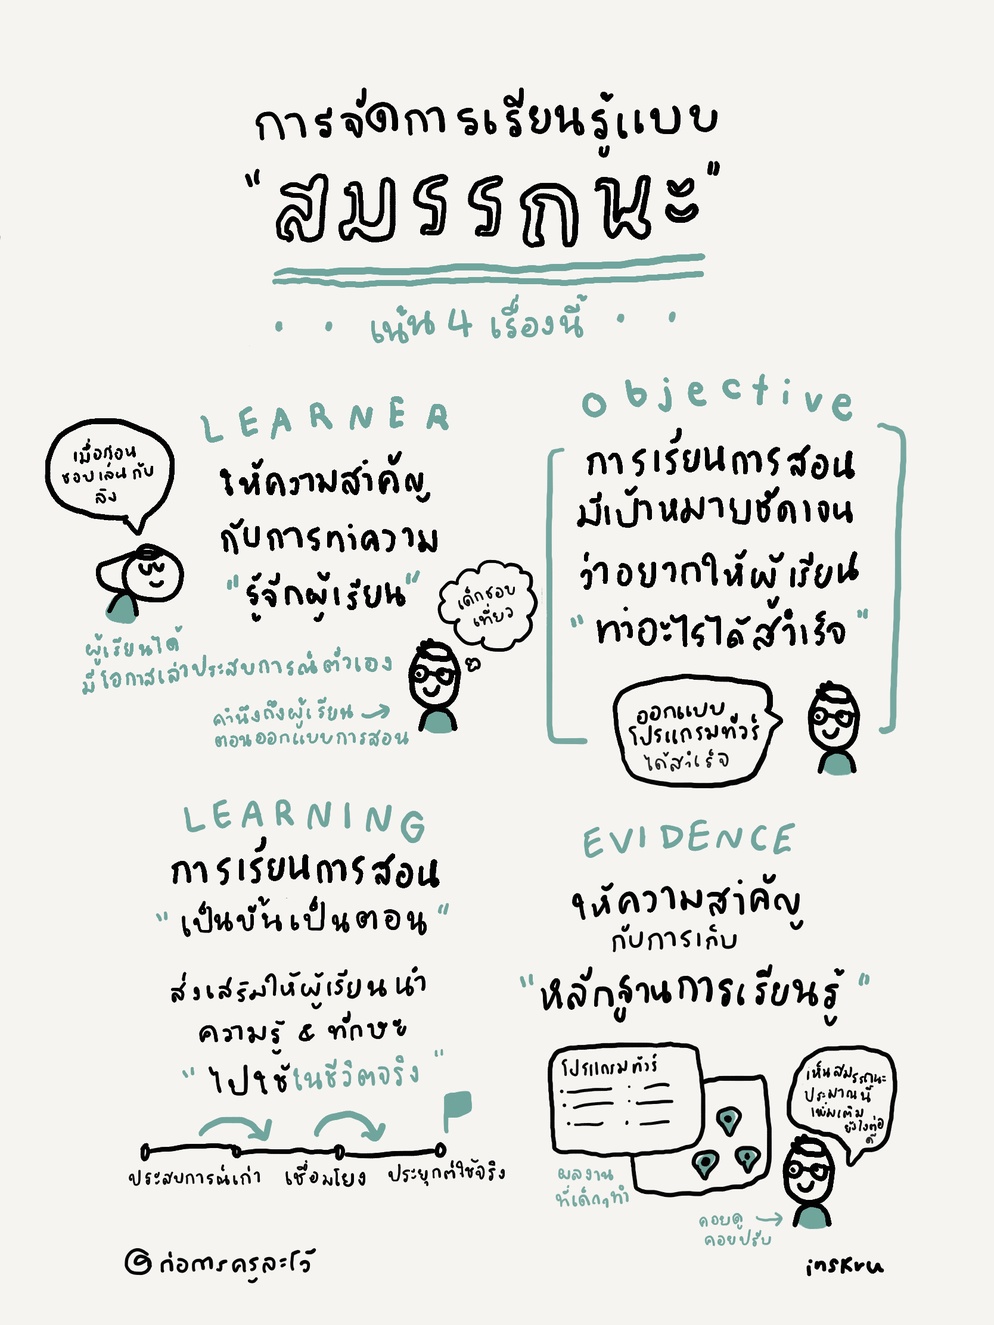 การจัดการเรียนรู้แบบ
"สมรรถนะ"
เน้น 4 เรื่องนี้
LEARNER
ให้ความสำคัญ
กับการทำความ
"รู้จักผู้เรียน"
เมื่อก่อน
ชอบเล่นกับ
ลิง
ผู้เรียนได้
มีโอกาสเล่าประสบการณ์ตัวเอง
เด็กชอบ
เที่ยว
คำนึงถึงผู้เรียน →
ตอนออกแบบการสอน
objective
การเรียนการสอน
มีเป้าหมายชัดเจน
ว่าอยากให้ผู้เรียน
"ทำอะไรได้สำเร็จ"
ออกแบบ
โปรแกรมทัวร์
ได้สำเร็จ
LEARNING
การเรียนการสอน
"เป็นขั้นเป็นตอน"
ส่งเสริมให้ผู้เรียนนำ
ความรู้ & ทักษะ
"ไปใช้ในชีวิตจริง"
ประสบการณ์เก่า เชื่อมโยง ประยุกต์ใช้จริง
EVIDENCE
ให้ความสำคัญ
กับการเก็บ
"หลักฐานการเรียนรู้"
โปรแกรมทัวร์
ผลงาน
ที่เด็กๆทำ
เห็นสมรรถนะ
ประมาณนี้
เพิ่มเติม
ยังไงต่อ
ดี
คอยดู →
คอยปรับ
@ก่อการครูละโว้
insKru